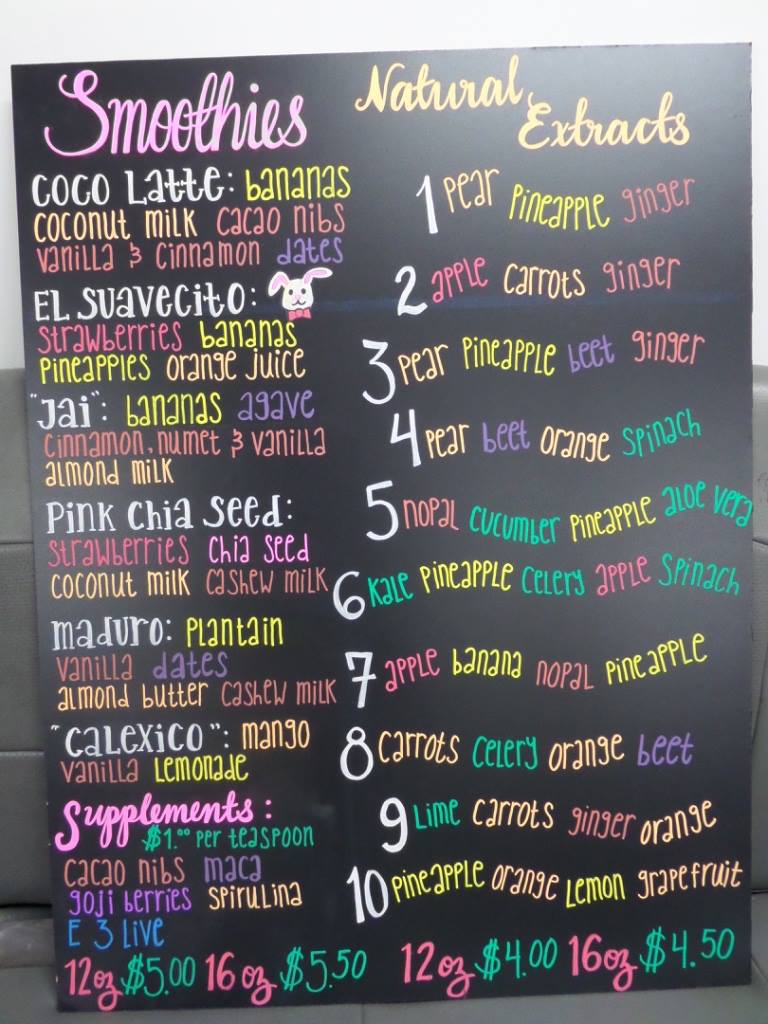 Smoothies
Coco Latte: bananas
coconut milk cacao nibs
vanilla & cinnamon dates
El Suavecito:
strawberries bananas
pineapples orange juice
"Jai": bananas agave
cinnamon, numet & vanilla
almond milk
Pink Chia Seed:
strawberries chia seed
coconut milk cashew milk
Maduro: plantain
vanilla dates
almond butter cashew milk
"Calexico": mango
vanilla lemonade
Supplements:
$1.00 per teaspoon
cacao nibs maca
goji berries spirulina
E 3 Live
12oz $5.00 16oz $5.50
Natural
Extracts
1 pear pineapple ginger
2 apple carrots ginger
3 pear pineapple beet ginger
4 pear beet orange spinach
5 nopal cucumber pineapple aloe vera
6 Kale pineapple celery apple spinach
7 apple banana nopal pineapple
8 carrots celery orange beet
9 Lime carrots ginger orange
10 pineapple orange lemon grapefruit
12oz $4.00 16oz $4.50